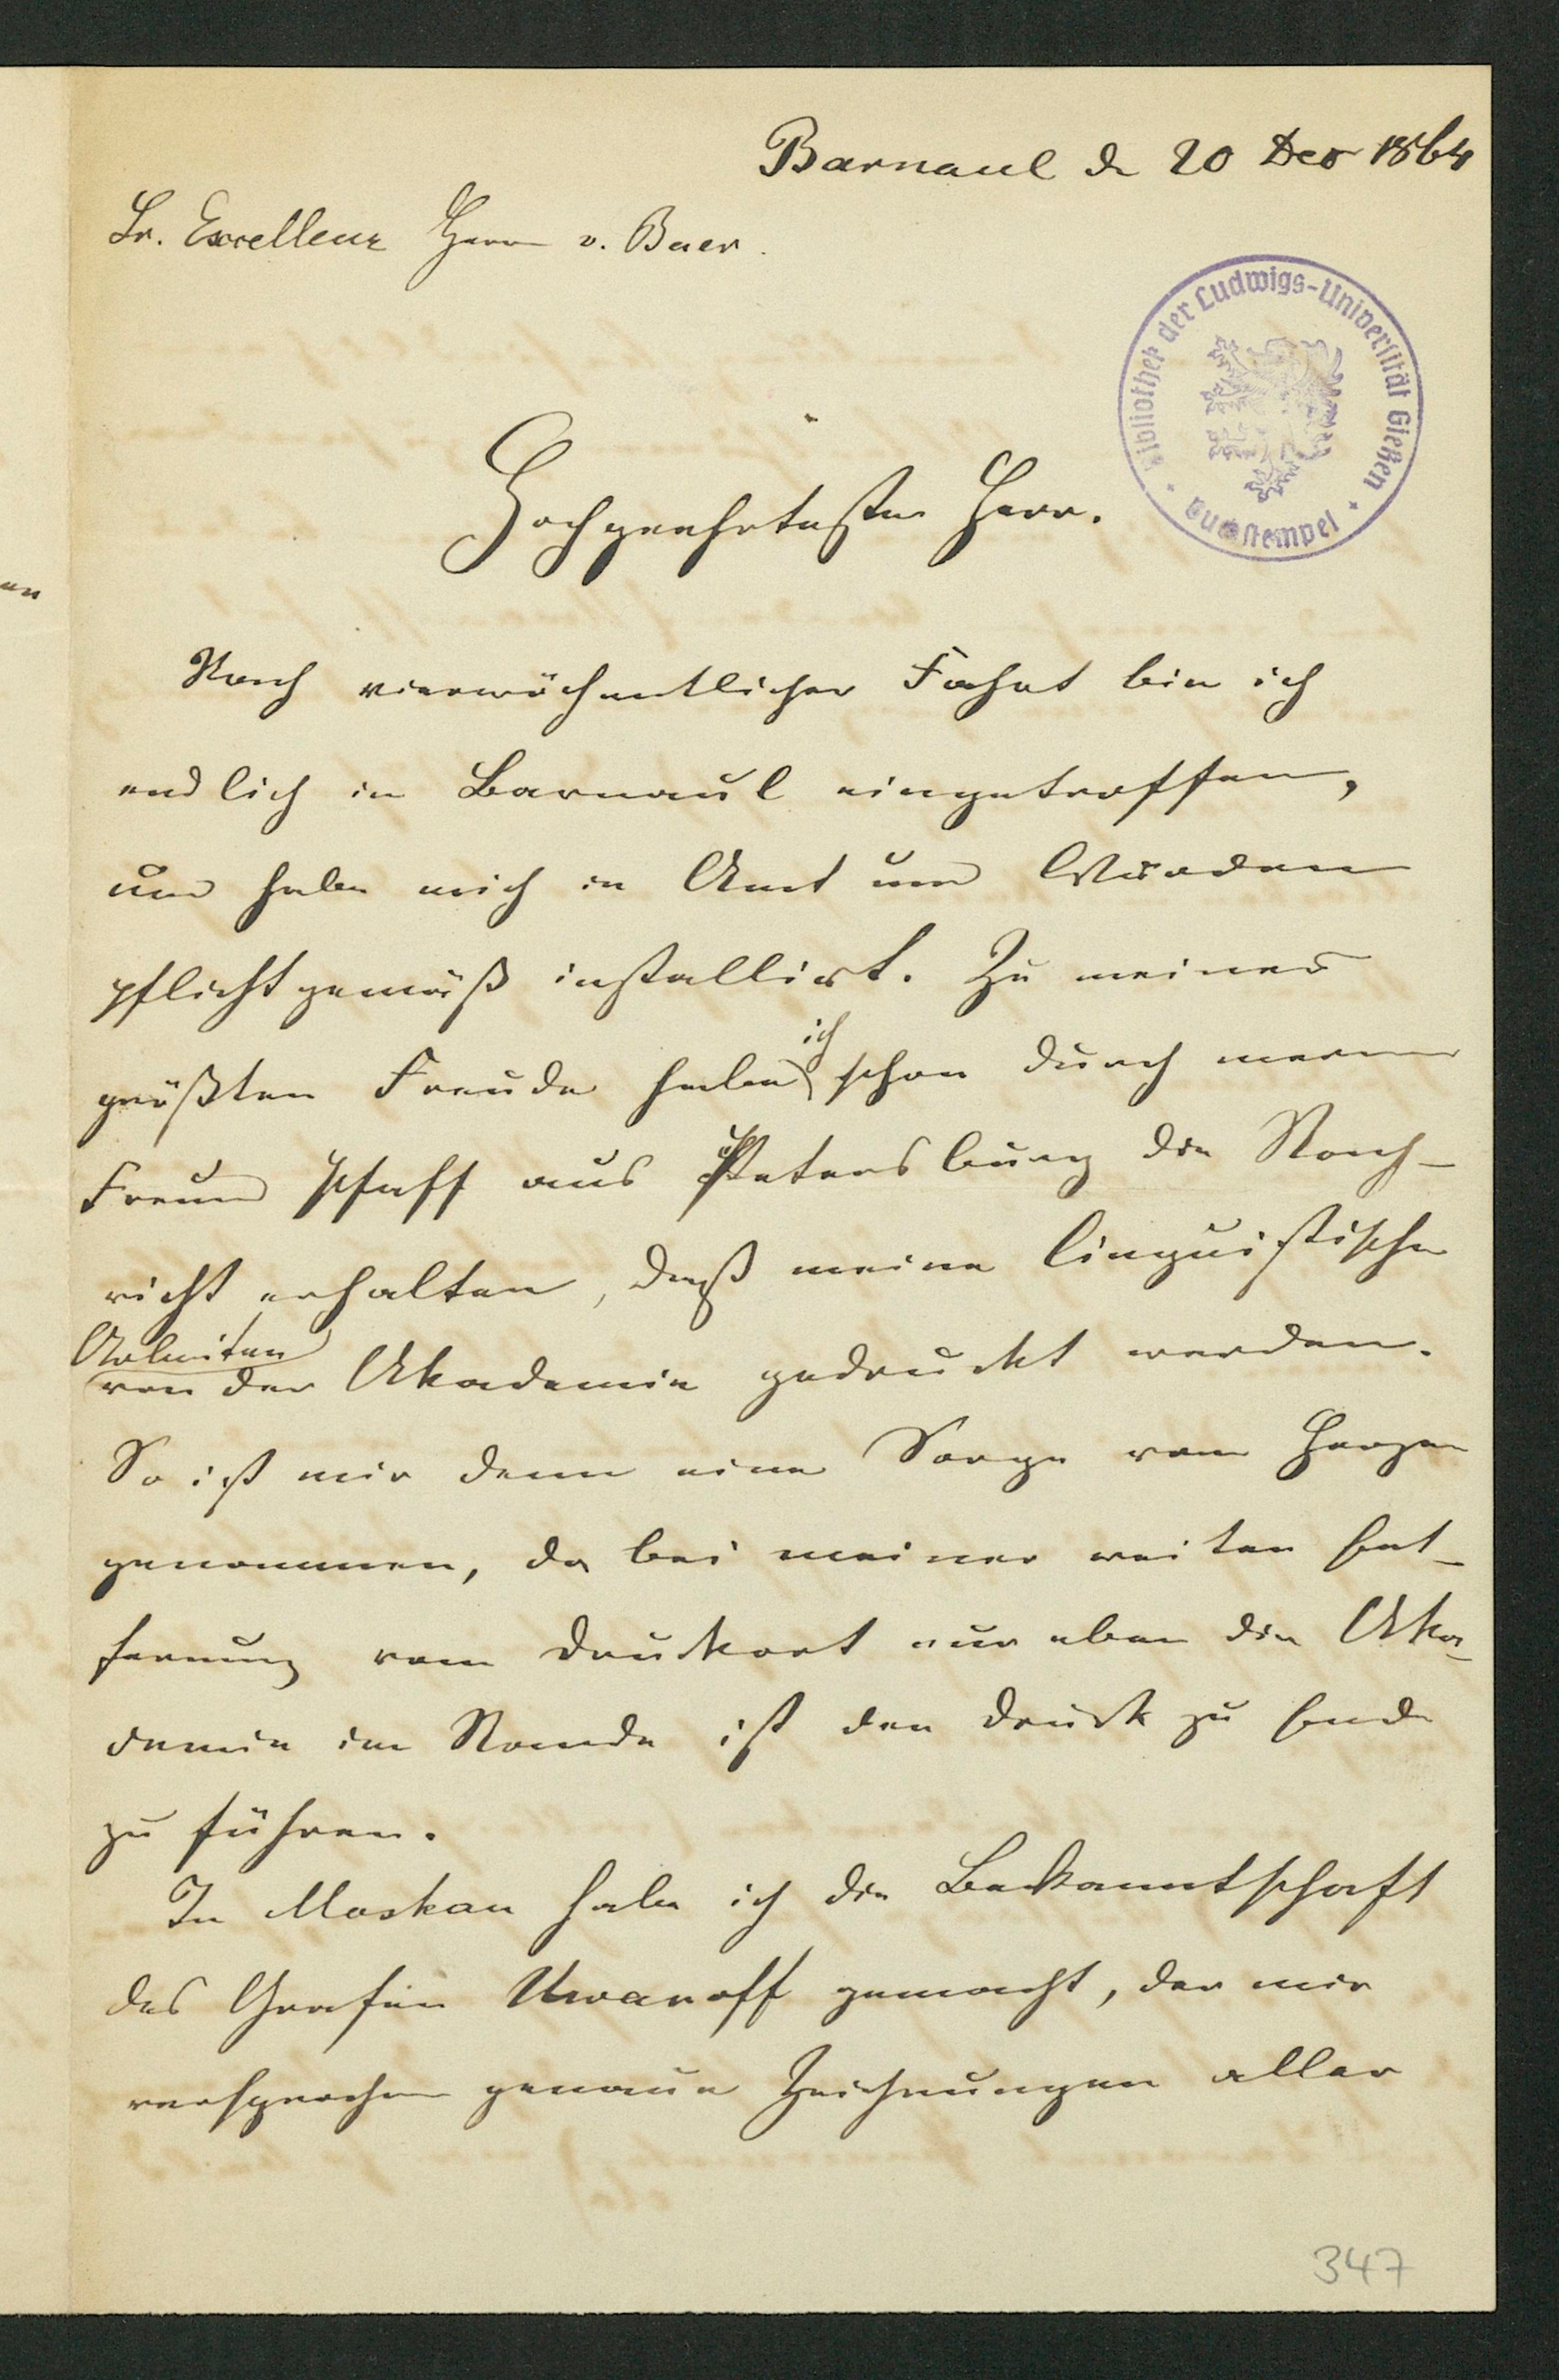 Barnaul d 20 Dec 1864
Sr. Excellenz Herrn v. Baer.
Bibliothek der Ludwigs-Universität Gießen
Buchstempel
Hochgeehrtester Herr.
Nach vierwöchentlicher Fahrt bin ich
endlich in Barnaul eingetroffen,
und habe mich in Amt und Würden
pflichtgemäß installirt. Zu meiner
größten Freude habe ich schon durch meinen
Freund aus Petersburg die Nach-
richt erhalten, daß meine linguistischen
Arbeiten
von der Akademie gedruckt werden.
So ist mir denn eine Sorge vom Herzen
genommen, da bei meiner weiten Ent-
fernung vom Druckort nur eben die Aka-
demie im Stande ist den Druck zu Ende
zu führen.
In Moskau habe ich die Bekanntschaft
des Grafen Uwaroff gemacht, der mir
versprochen genaue Zeichnungen aller
347